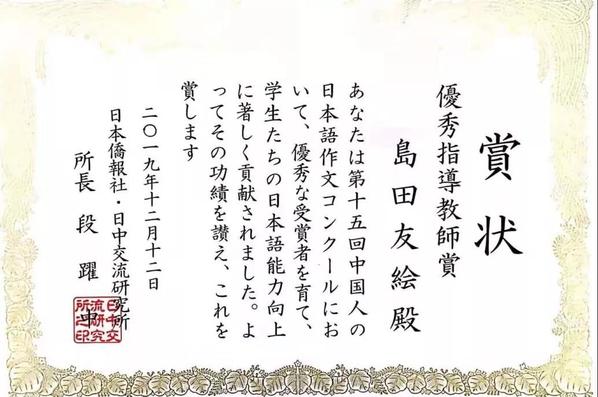 賞状
優秀指導教師賞
島田友絵殿
あなたは第十五回中国人の
日本語作文コンクールにお
いて、優秀な受賞者を育て、
学生たちの日本語能力向上
に著しく貢献されました。よ
ってその功績を讃え、これを
賞します
二〇一九年十二月十二日
日本僑報社・日中交流研究所
所長 段 躍 中
日中交
流研究
所之印